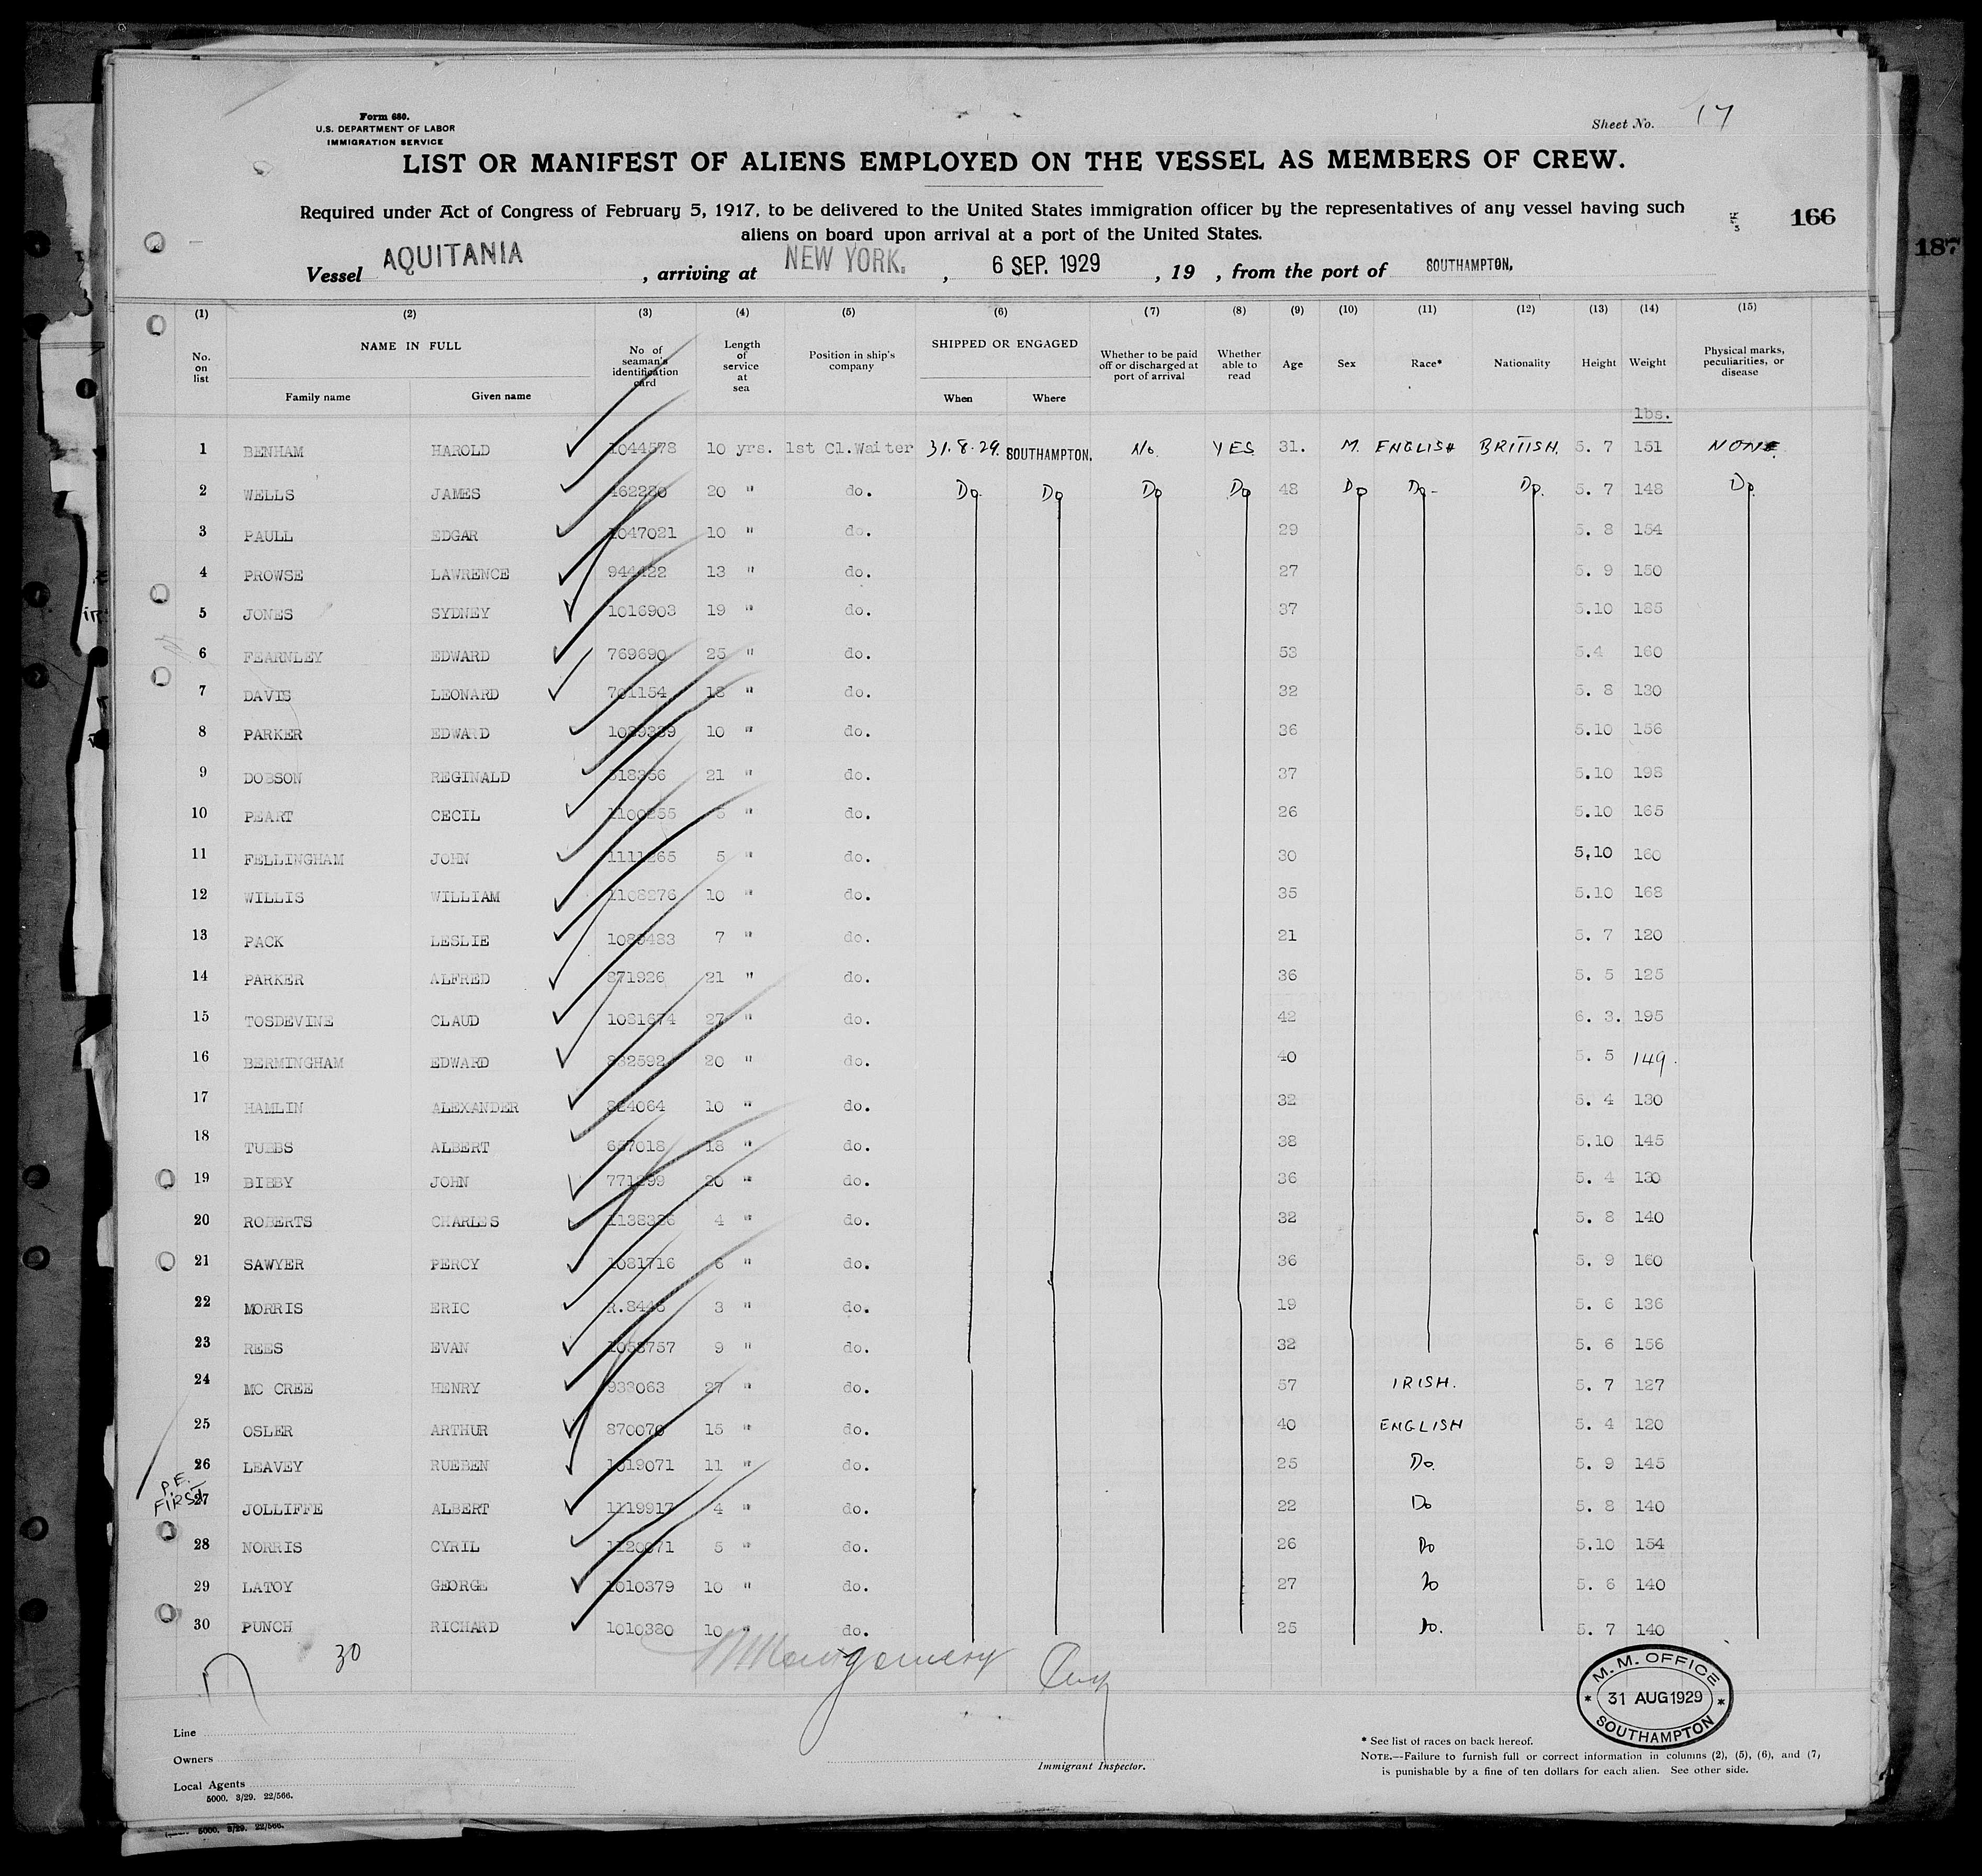 Form 680.
U.S. DEPARTMENT OF LABOR
IMMIGRATION SERVICE
Sheet No. 17
LIST OR MANIFEST OF ALIENS EMPLOYED ON THE VESSEL AS MEMBERS OF CREW.
Required under Act of Congress of February 5, 1917, to be delivered to the United States immigration officer by the representatives of any vessel having such
aliens on board upon arrival at a port of the United States.
166
187
Vessel AQUITANIA , arriving at NEW YORK. , 6 SEP. 1929 , 19 , from the port of SOUTHAMPTON,
(1) (2) (3) (4) (5) (6) (7) (8) (9) (10) (11) (12) (13) (14) (15)
No. on list NAME IN FULL Family name Given name No of seaman's identification card Length of service at sea Position in ship's company SHIPPED OR ENGAGED When Where Whether to be paid off or discharged at port of arrival Whether able to read Age Sex Race* Nationality Height Weight Physical marks, peculiarities, or disease
lbs.
1 BENHAM HAROLD 1044578 10 yrs. 1st Cl.Waiter 31.8.29. SOUTHAMPTON, No. YES 31. M. ENGLISH BRITISH. 5. 7 151 NONE.
2 WELLS JAMES 462280 20 " do. Do. Do Do Do 48 Do Do- Do. 5. 7 148 Do.
3 PAULL EDGAR 1047021 10 " do. 29 5. 8 154
4 PROWSE LAWRENCE 944422 13 " do. 27 5. 9 150
5 JONES SYDNEY 1016903 19 " do. 37 5.10 185
6 FEARNLEY EDWARD 769690 25 " do. 53 5.4 160
7 DAVIS LEONARD 701154 18 " do. 32 5. 8 130
8 PARKER EDWARD 1089389 10 " do. 36 5.10 156
9 DOBSON REGINALD 518356 21 " do. 37 5.10 198
10 PEART CECIL 1100255 5 " do. 26 5.10 165
11 FELLINGHAM JOHN 1111265 5 " do. 30 5.10 160
12 WILLIS WILLIAM 1108276 10 " do. 35 5.10 168
13 PACK LESLIE 1089483 7 " do. 21 5. 7 120
14 PARKER ALFRED 871926 21 " do. 36 5. 5 125
15 TOSDEVINE CLAUD 1081674 27 " do. 42 6. 3. 195
16 BERMINGHAM EDWARD 832592 20 " do. 40 5. 5 149.
17 HAMLIN ALEXANDER 824064 10 " do. 32 5. 4 130
18 TUBBS ALBERT 657018 18 " do. 38 5.10 145
19 BIBBY JOHN 771299 20 " do. 36 5. 4 130
20 ROBERTS CHARLES 1138326 4 " do. 32 5. 8 140
21 SAWYER PERCY 1081716 6 " do. 36 5. 9 160
22 MORRIS ERIC R.8446 3 " do. 19 5. 6 136
23 REES EVAN 1058757 9 " do. 32 5. 6 156
24 MC CREE HENRY 933063 27 " do. 57 IRISH. 5. 7 127
25 OSLER ARTHUR 870070 15 " do. 40 ENGLISH 5. 4 120
26 LEAVEY RUEBEN 1019071 11 " do. 25 Do. 5. 9 145
P.E.
FIRST
27 JOLLIFFE ALBERT 1119917 4 " do. 22 Do 5. 8 140
28 NORRIS CYRIL 1120071 5 " do. 26 Do 5.10 154
29 LATOY GEORGE 1010379 10 " do. 27 Do 5. 6 140
30 PUNCH RICHARD 1010380 10 " do. 25 Do. 5. 7 140
30
Montgomery
M. M. OFFICE
31 AUG 1929
SOUTHAMPTON
Line
Owners
Local Agents
5000. 3/29. 22/566.
Immigrant Inspector.
* See list of races on back hereof.
NOTE.—Failure to furnish full or correct information in columns (2), (5), (6), and (7)
is punishable by a fine of ten dollars for each alien. See other side.
5000. 3/29. 22/566.